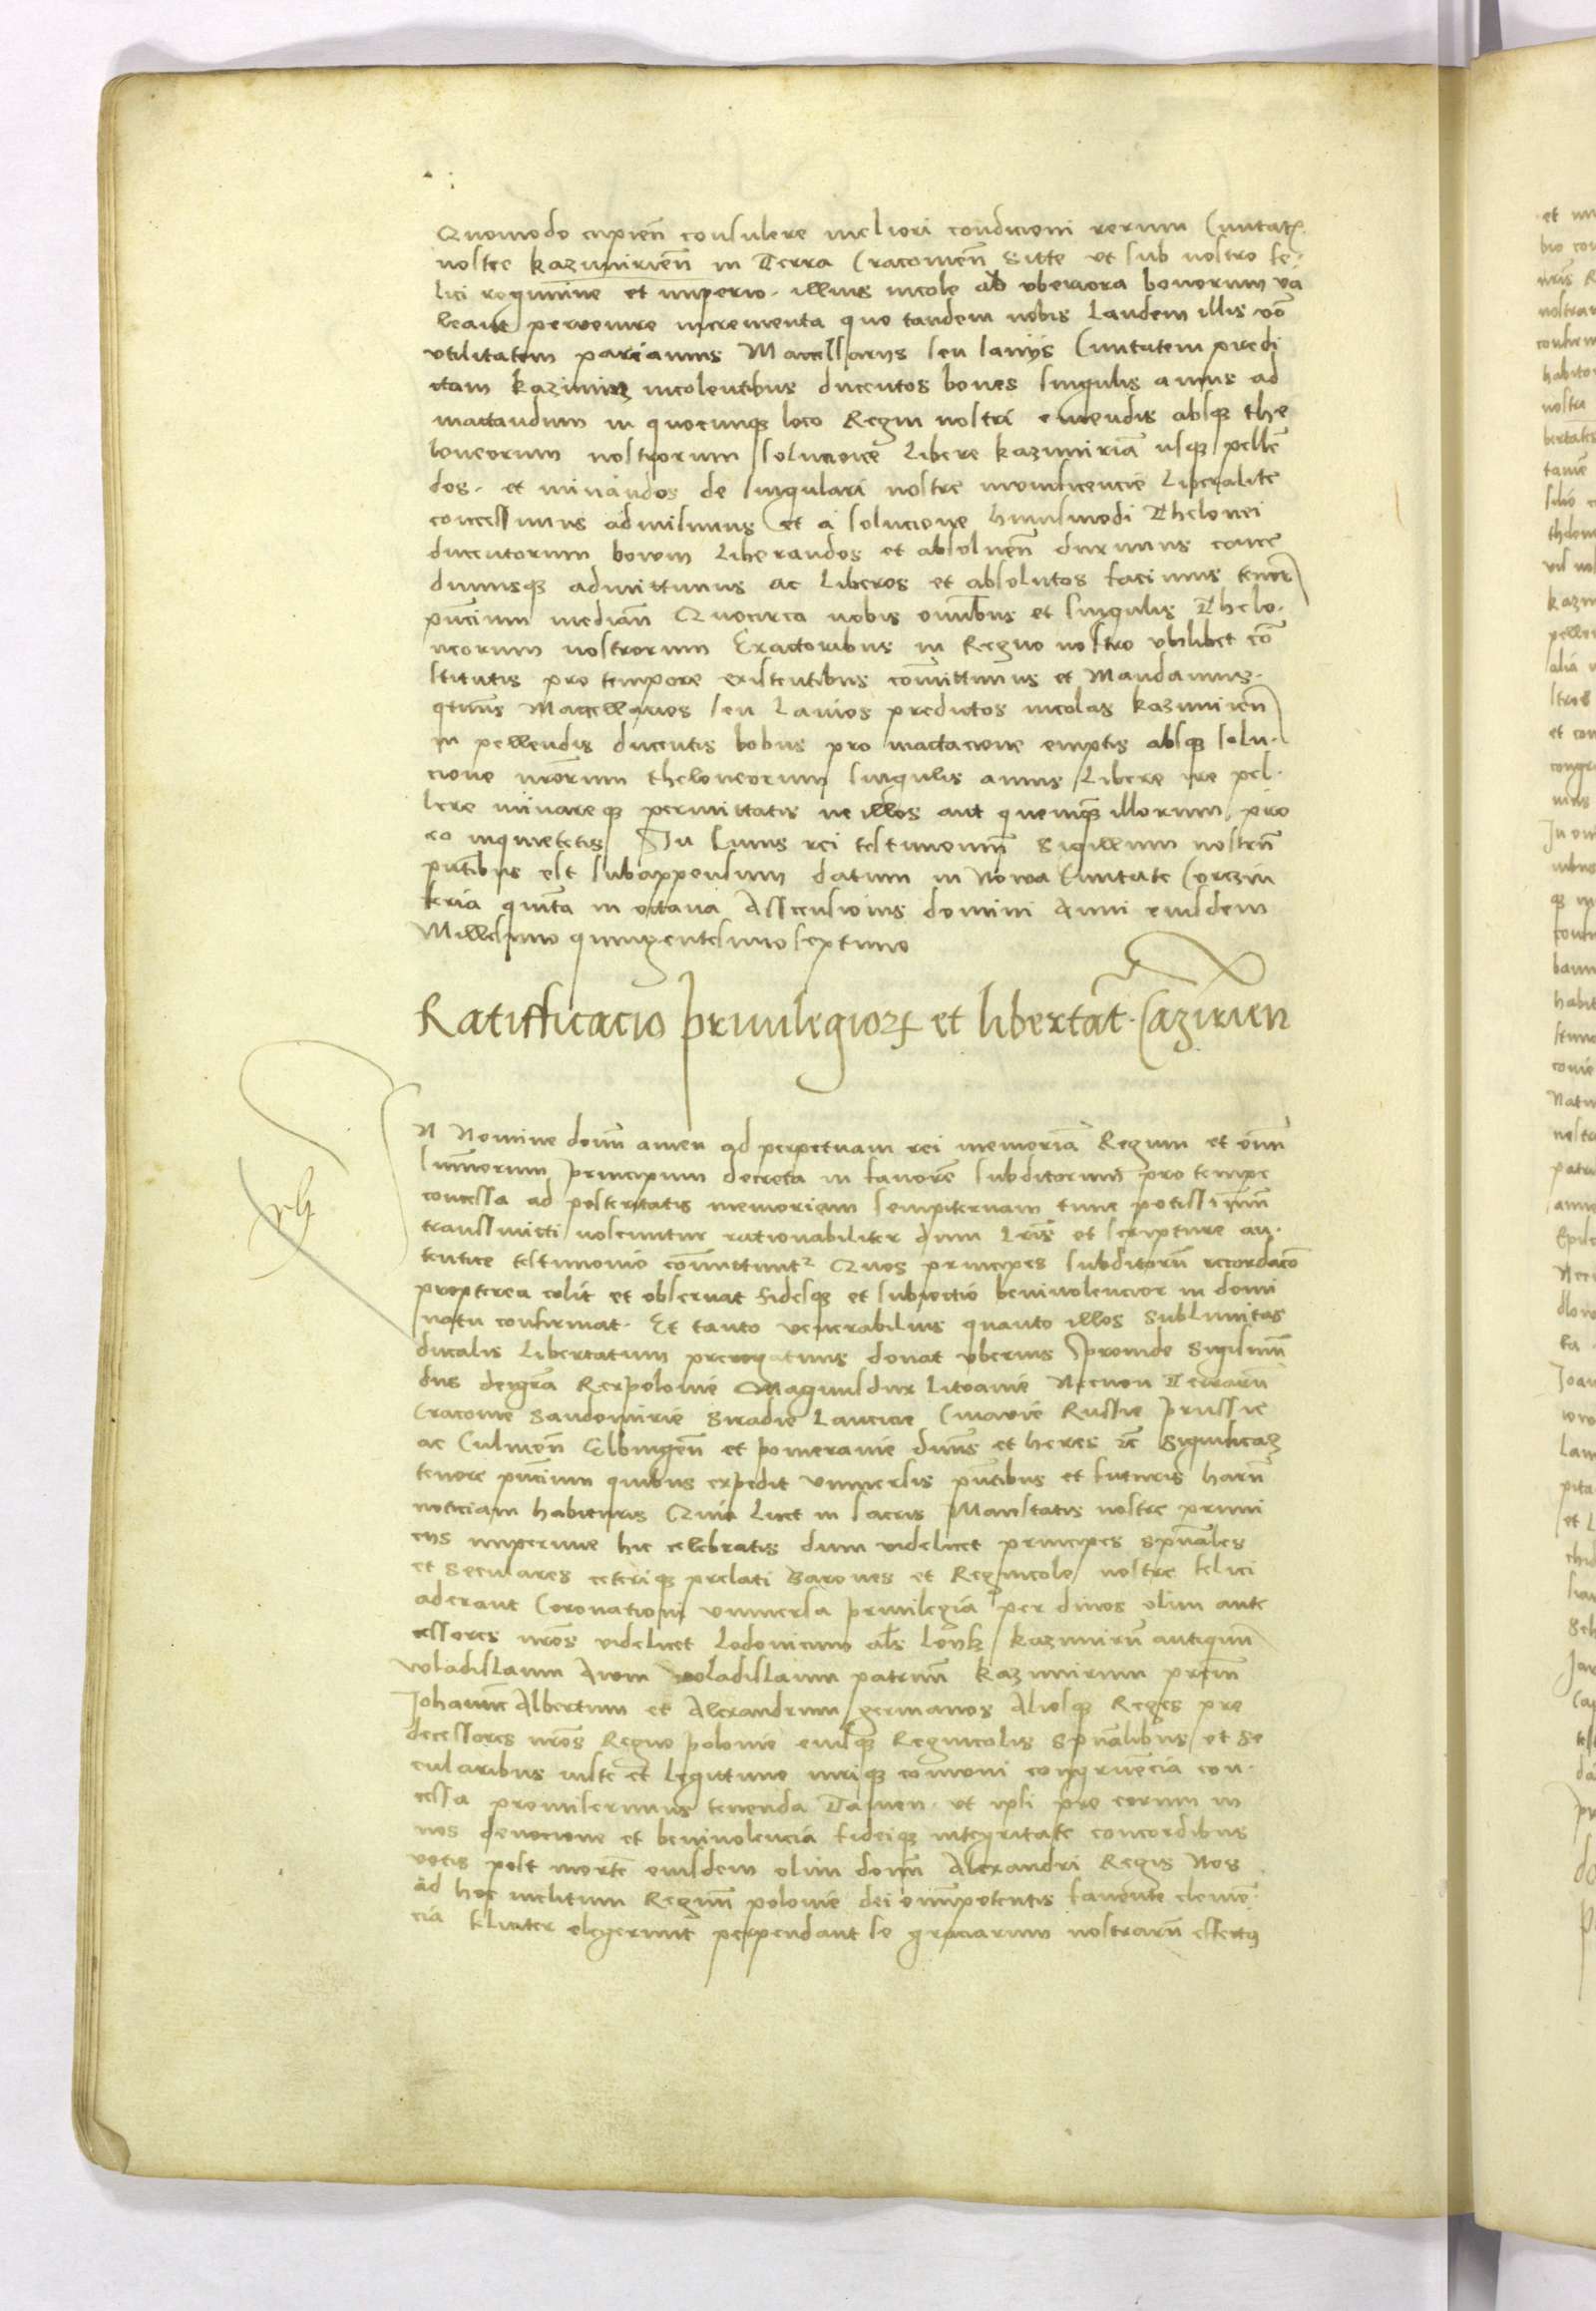 Quomodo cupien̄ consulere meliori condicioni rerum Ciuitatꝭ
nostre kazimirien̄ in Terra Cracouien̄ Sitte vt sub nostro fe-
lici regimine et imperio. illius incole ad vberiora bonorum va
leant pervenire incrementa quo tandem nobis Laudem illis vō
vtilitatem pariamus Macellarys seu lanijs Ciuitatem predi
ctam kazimirꝫ incolentibus ducentos boues singulis annis ad
mactandum in quocunqꝫ loco Regni nostri emendis absqꝫ the
loneorum nostrorum solucione Libere kazimiriā usqꝫ pellē
dos. et minandos de singulari nostre munificencie Liberalite
concessimus admisimus et a solucione huiusmodi Thelonei
ducentorum boum Liberandos et absoluen̄ duximus conce
dimusqꝫ admittimus ac Liberos et absolutos facimus tenor
pn̄cium median̄ Quocirca vobis om̄ibus et singulis Thelo-
neorum nostrorum Exactoribus in Regno nostro vbilibet cō
stitutis pro tempore existentibus com̄ittimus et Mandamus.
qtin̄s Macellarios seu Lanios predictos incolas kazimirien̄
in pellendis ducentis bobus pro mactacione emptis absqꝫ solu-
cione nr̄orum theloneorum singulis annis Libere ire pel-
lere minareqꝫ permittatis ne illos aut quemqꝫ illorum pro
eo inquietetis In Cuius rei testimoniū Sigillum nostrū
pn̄tibus est subappensum datum in Nowa Ciuitate Corczin
feria quinta in octaua Assensionis domini Anni eiusdem
Millesimo quingentesimo septimo
Ratifficacio priuilegioꝝ et libertat. Cazirien
N Nomine domī amen ad perpetuam rei memoriā Regum et om̄
principum decreta in fauorē subditorum pro tempe
concessa ad posteritatis memoriam sempiternam tunc potissimū
transmitti noscuntur rationabiliter dum Lr̄is et scripture au-
tentice testimonio com̄ittunt² Quos principes subditorū recordacō
propterea colit et obseruat fidesqꝫ et subiectio beniuolencior in domi
natu confirmat. Et tanto venerabilius quanto illos Sublimitas
ducalis Libertatum prerogatiuis donat vberius Proinde Sigismū
dus deigrā Rexpolonie Magnusdux Litvanie Necnon Terrarū
Cracouie Sandomirie Siradie Lancicie Cuiavie Russie prussie
ac Culmen̄ Elbingen̄ et pomeranie dn̄s et heres ꝛc̄ Significaꝫ
tenore pn̄cium quibus expedit vniuersis pn̄tibus et futuris harū
noticiam habituris Quia Licet in sacris Maiestatis nostre primi
cijs imperiive hic celebratis dum videlicet principes Spūales
et Seculares ceteriqꝫ prelati Barones et Regnicole nostre felici
aderant Coronationi vniuersa priuilegia per diuos olim ante
cessores nr̄os videlicet Lodouicum al̄s Loysz kazimirū antiquū
wladislaum Auom wladislaum patruū kazimirum prēm
Johannē Albertum et Alexandrum germanos Aliosqꝫ Reges pre
decessores nr̄os Regno polonie eiusqꝫ Regnicolis Spūalibus et Se
cularibus iuste et Legittime iurisqꝫ comuni congruencia con-
cessa promiserimus tenenda Tamen. vt ipsi pro eorum in
nos deuocione et beniuolencia fideiqꝫ integritate concordibus
votis post mortē eiusdem olim domī Alexandri Regis Nos
ad hoc inclitum Regnū polonie dei om̄ipotentis fauente clemē-
cia elegerunt perpendant se graciarum nostrarū effectꝰ